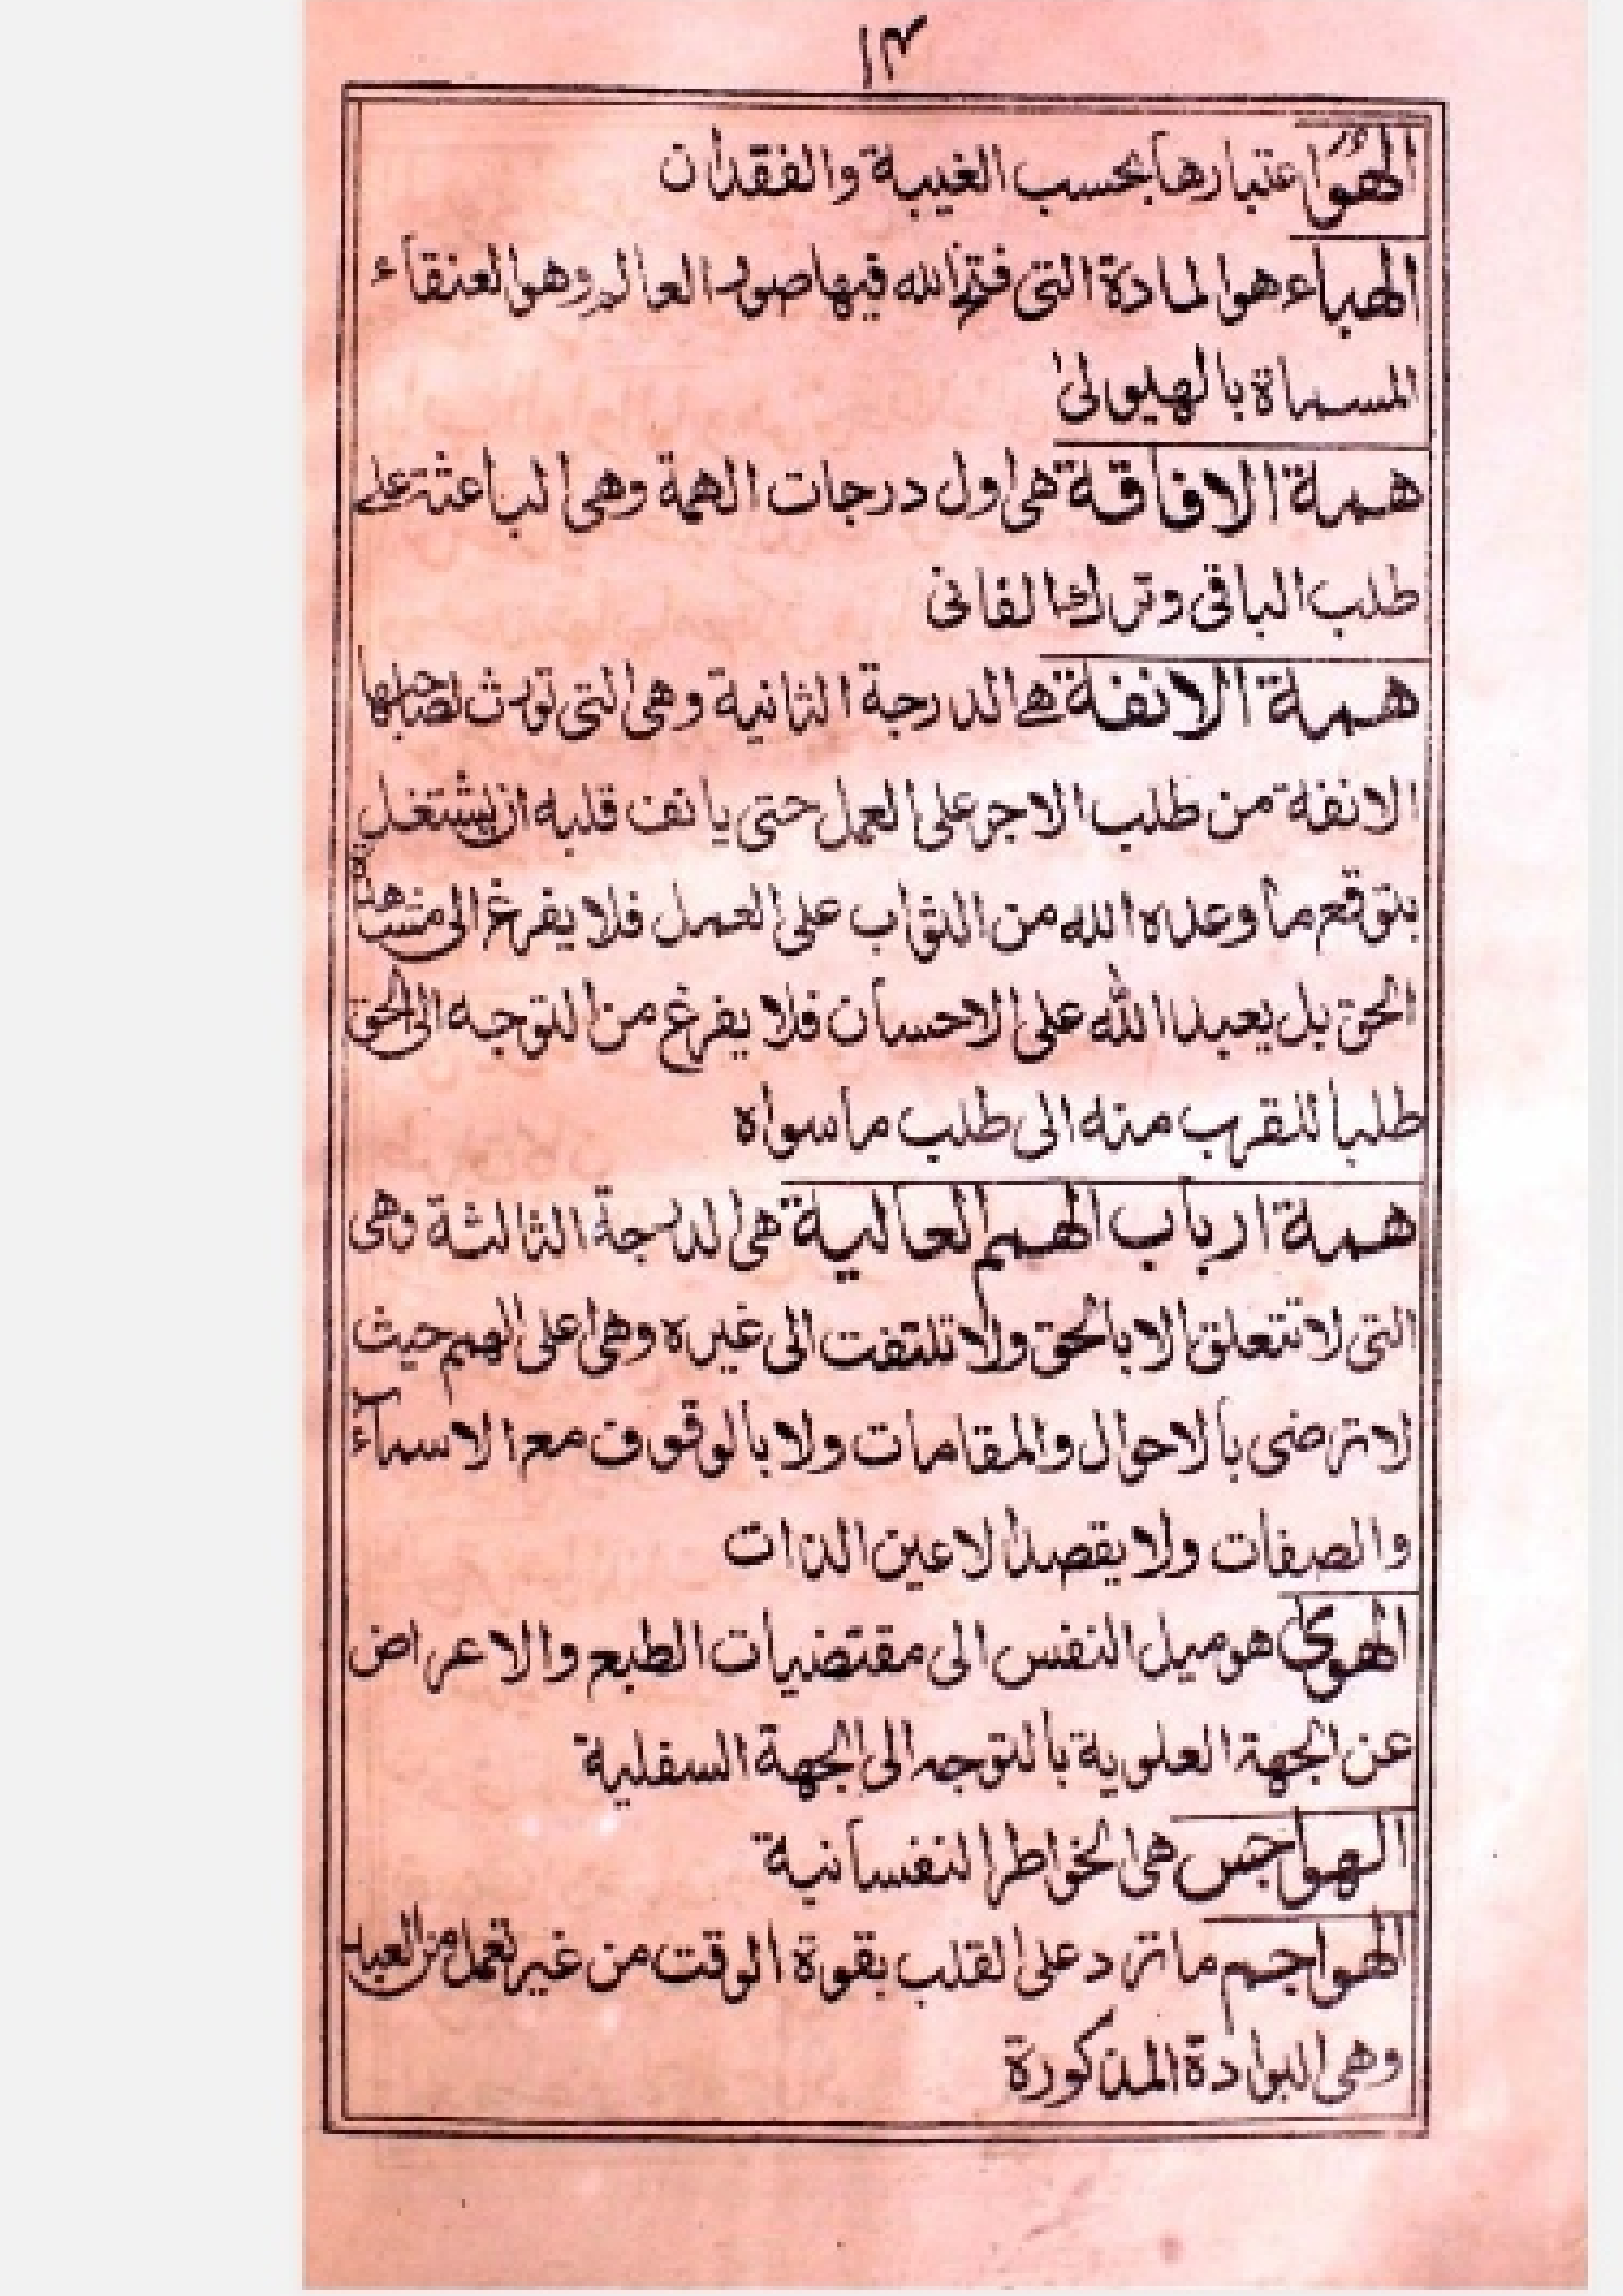 ١٣
الهُوَ اعتبارها بحسب الغيبة والفقدان
الهباء هو المادة التى فتح الله فيها صور العالم وهو العنقاء
المسماة بالهيولى
همة الافاقة هى اول درجات الهمة وهى الباعثة على
طلب الباقى وترك الفانى
همة الانفة هى الدرجة الثانية وهى التى تورث لصاحبها
الانفة من طلب الاجر على العمل حتى يانف قلبه ان يشتغل
بتوقع ما وعده الله من الثواب على العمل فلا يفرغ الى مشاهدة
الحق بل يعبد الله على الاحسان فلا يفرغ من التوجه الى الحق
طلبا للقرب منه الى طلب ما سواه
همة ارباب الهمم العالية هى الدرجة الثالثة وهى
التى لا تتعلق الا بالحق ولا تلتفت الى غيره وهى اعلى الهمم حيث
لا ترضى بالاحوال والمقامات ولا بالوقوف مع الاسمآء
والصفات ولا يقصد الا عين الذات
الهوى هو ميل النفس الى مقتضيات الطبع والاعراض
عن الجهة العلوية بالتوجه الى الجهة السفلية
الهواجس هى الخواطر النفسانية
الهواجم ما ترد على القلب بقوة الوقت من غير تعمل من العبد
وهى البوادة المذكورة